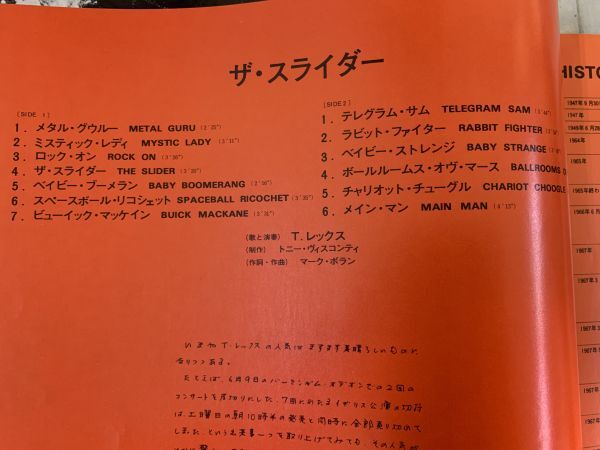 ザ・スライダー
〔SIDE 1〕
1. メタル・グウルー METAL GURU (2'25")
2. ミスティック・レディ MYSTIC LADY (3'11")
3. ロック・オン ROCK ON
4. ザ・スライダー THE SLIDER
5. ベイビー・ブーメラン BABY BOOMERANG
6. スペースボール・リコシェット SPACEBALL RICOCHET
7. ビューイック・マッケイン BUICK MACKANE (3'31")
〔SIDE 2〕
1. テレグラム・サム TELEGRAM SAM
2. ラビット・ファイター RABBIT FIGHTER
3. ベイビー・ストレンジ BABY STRANGE
4. ボールルームス・オヴ・マース BALLROOMS O
5. チャリオット・チューグル CHARIOT CHOOGLE
6. メイン・マン MAIN MAN (4'13")
(歌と演奏) T.レックス
(制作) トニー・ヴィスコンティ
(作詞・作曲) マーク・ボラン
いまやT・レックスの人気はますます素晴らしいものに
なりつつある。
たとえば、6月9日のバーミンガム・オデオンでの2回の
コンサートを皮切りにした、7回にわたるイギリス公演の切符
は、土曜日の朝10時半の発売と同時に全部売り切れて
しまった、という事一つを取り上げてみても、その人気が
HISTO
1947年9月30
1947年
1949年6月28
1964年
1965年
1965年終わ
1966年6月
1967年
1967年3
1967年
1967年